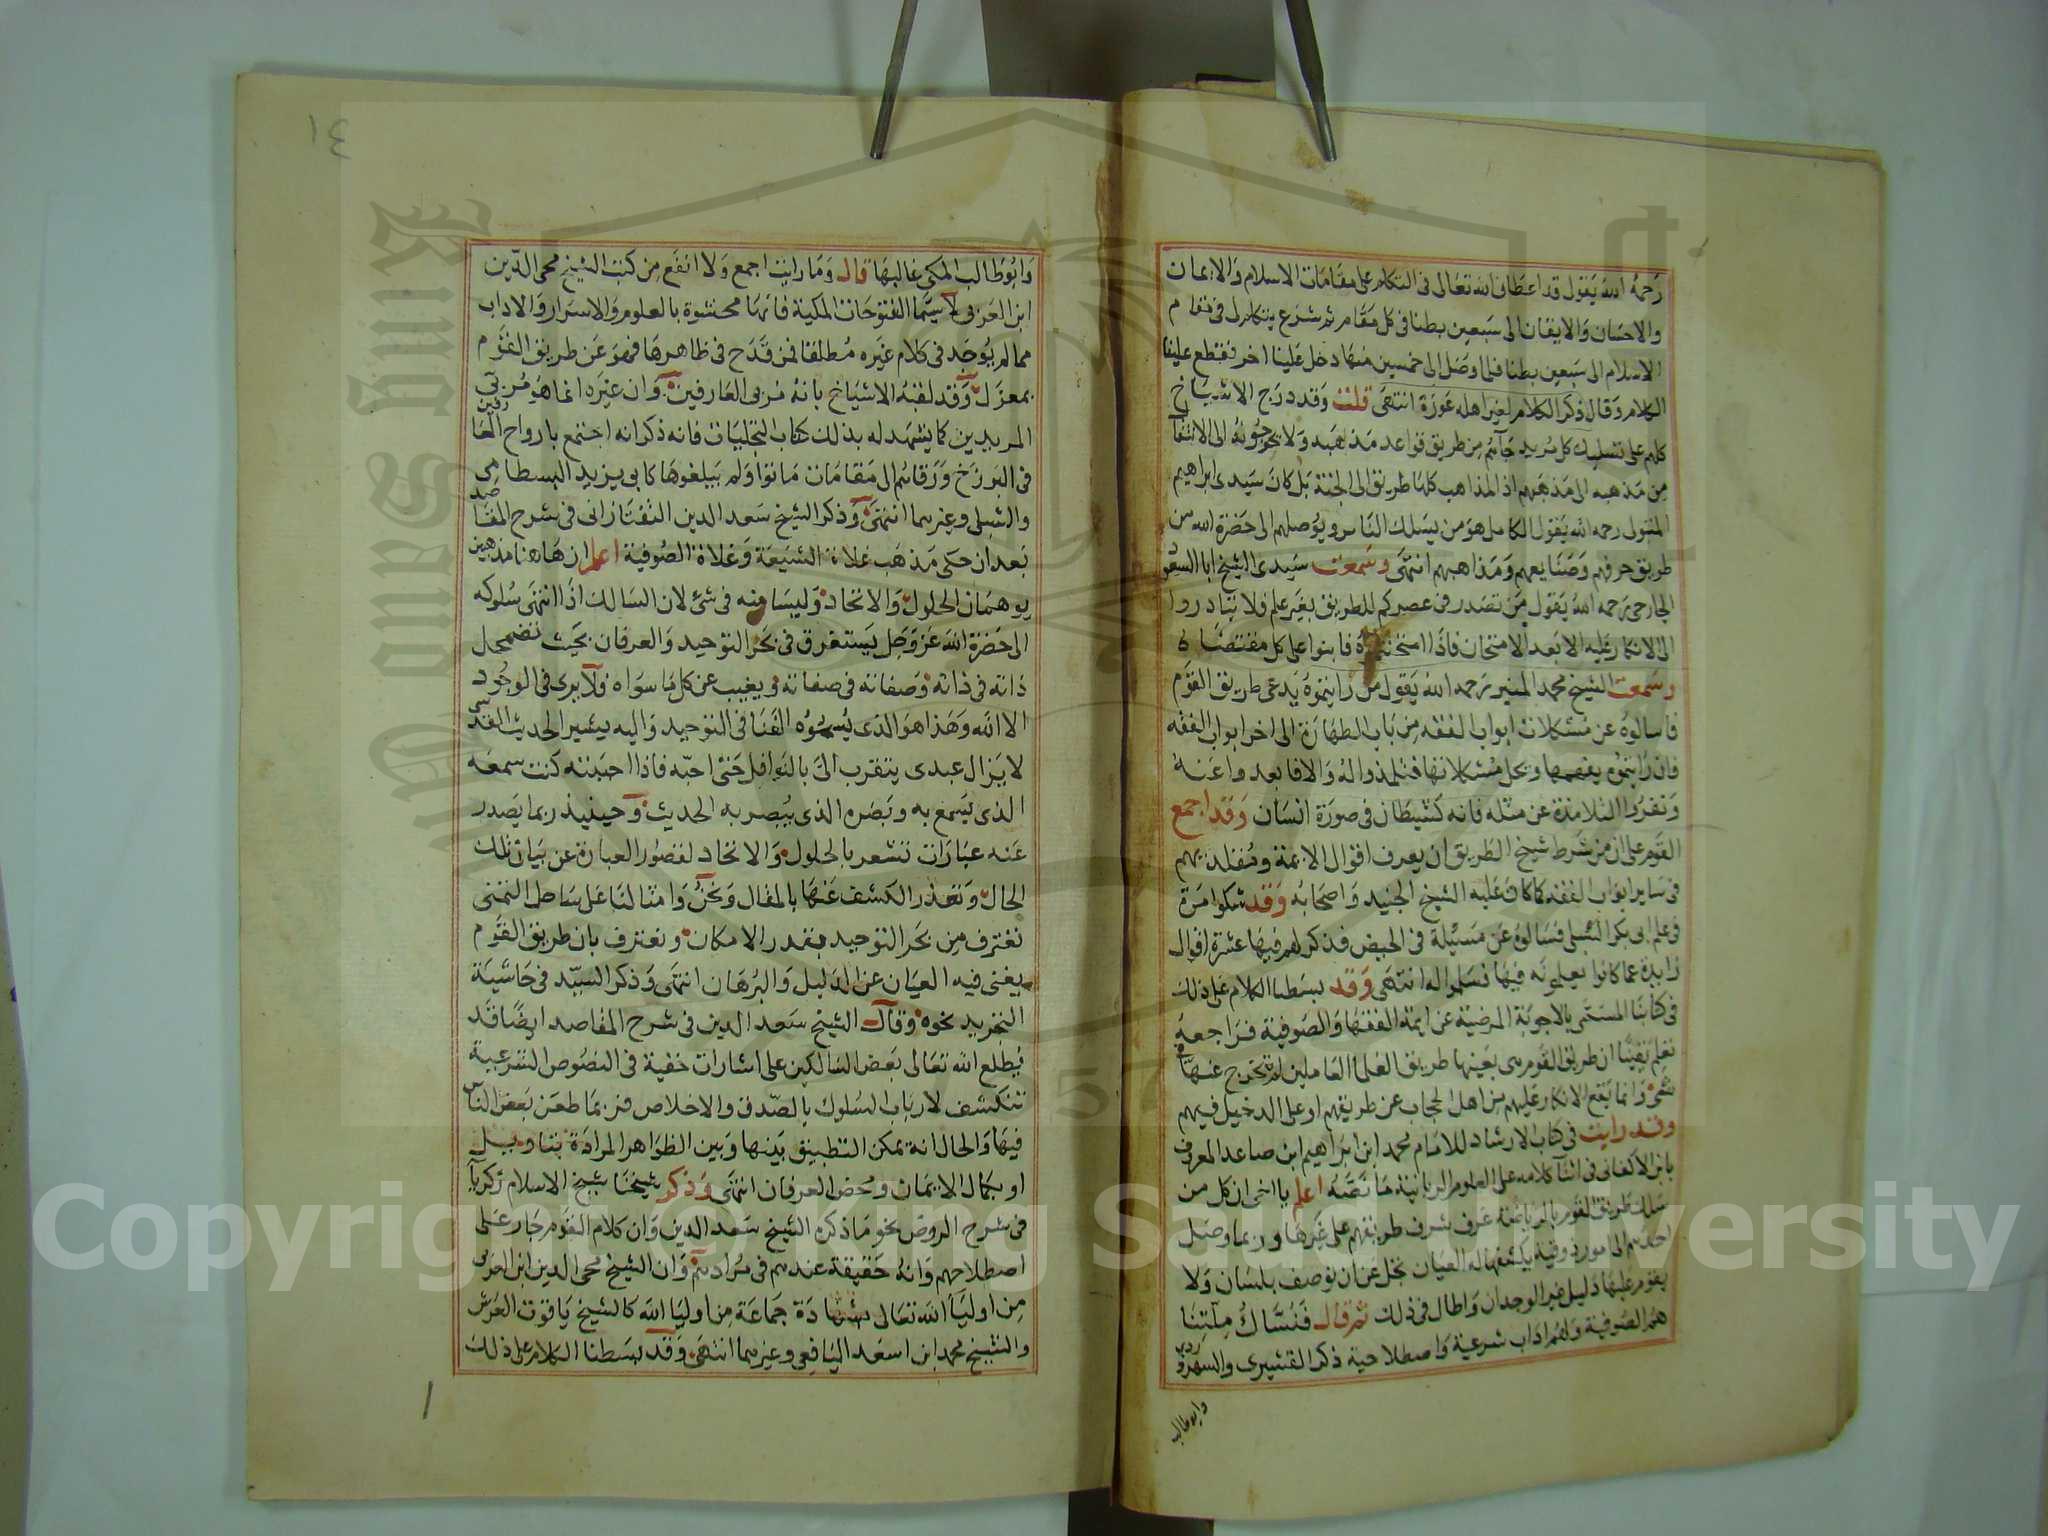 رحمه الله يقول قد اعطانى الله تعالى فى التكلم على مقامات الاسلام والايمان
والاحسان والايقان الى سبعين بطنا فى كل مقام ثم شرع يتكلم فى مقام
الاسلام الى سبعين بطنا فلما وصل الى خمسين منها دخل علينا اخر فقطع علينا
الكلام وقال ذكر الكلام لغير اهله عورة انتهى قلت وقد درج الاشياخ
كلهم على تسليك كل مريد جآئهم من طريق قواعد مذهبه ولا يحوجونه الى الانتقال
من مذهبه الى مذهبهم اذ المذاهب كلها طريق الى الجنة بل كان سيدى ابراهيم
المتبولى رحمه الله يقول الكامل هو من يسلك الناس ويوصلهم الى حضرة الله من
طريق حرفهم وصنايعهم ومذاهبهم انتهى وسمعت سيدى الشيخ ابا السعود
الجارحى رحمه الله يقول من تصدر فى عصركم للطريق بغير علم فلا تبادروا
الى الانكار عليه الا بعد الامتحان فاذا امتحنتموه فابنوا على كل مقتضاه
وسمعت الشيخ محمد المنير رحمه الله يقول من رايتموه يدعى طريق القوم
فاسالوه عن مشكلات ابواب الفقه من باب الطهارة الى اخر ابواب الفقه
فان رايتموه يفهمها ويحل مشكلاتها فتلمذوا له والا فابعدوا عنه
ونفروا التلامذة عن مثله فانه كشيطان فى صورة انسان وقد اجمع
القوم على ان من شرط شيخ الطريق ان يعرف اقوال الايمة ومقلديهم
فى ساير ابواب الفقه كما كان عليه الشيخ الجنيد واصحابه وقد شكوا مرة
فى علم ابى بكر الشبلى فسالوه عن مسئلة فى الحيض فذكر لهم فيها عشرة اقوال
زايدة عما كانوا يعلمونه فيها فسلموا له انتهى وقد بسطنا الكلام على ذلك
فى كتابنا المسمى بالاجوبة المرضية عن ايمة الفقها والصوفية فراجعه
تعلم يقينا ان طريق القوم هى بعينها طريق العلما العاملين لم تخرج عنها فى
شئ وانما يقع الانكار عليهم من اهل الحجاب عن طريقهم او على الدخيل فيهم
وقد رايت فى كتاب الارشاد للامام محمد ابن ابراهيم ابن صاعد المعروف
بابن الاكفانى فى اثنآ كلامه على العلوم الربانية ما نصه اعلم يا اخى ان كل من
سلك طريق القوم بالرياضة عرف شرف طريقهم على غيرها وربما وصل
احدهم الى امور ذوقية يكشفها له العيان تجل عن ان توصف بلسان ولا
يقوم عليها دليل غير الوجدان واطال فى ذلك ثم قال فنساك ملتنا
هم الصوفية ولهم اداب شرعية واصطلاحية ذكرا القشيرى والسهروردى
وابو طالب
١٤
وابو طالب المكى غالبها قال وما رايت اجمع ولا انفع من كتب الشيخ محى الدين
ابن العربى لا سيما الفتوحات المكية فانها محشوة بالعلوم والاسرار والاداب
مما لم يوجد فى كلام غيره مطلقا فمن قدح فى ظاهرها فهو عن طريق القوم
بمعزل وقد لقبه الاشياخ بانه مربى العارفين وان غيره انما هو مربى
المريدين كما يشهد له بذلك كتاب التجليات فانه ذكر انه اجتمع بارواح العارفين
فى البرزخ ورقاهم الى مقامات ماتوا ولم يبلغوها كابى يزيد البسطامى
والشبلى وغيرهما انتهى وذكر الشيخ سعد الدين التفتازانى فى شرح المقاصد
بعد ان حكى مذهب غلاة الشيعة وغلاة الصوفية اعلم ان هاهنا مذهبين
يوهمان الحلول والاتحاد وليسا منه فى شئ لان السالك اذا انتهى سلوكه
الى حضرة الله عز وجل يستغرق فى بحر التوحيد والعرفان بحيث تضمحل
ذاته فى ذاته وصفاته فى صفاته ويغيب عن كل ما سواه ولا يرى فى الوجود
الا الله وهذا هو الذى يسموه الفنا فى التوحيد واليه يشير الحديث القدسى
لا يزال عبدى يتقرب الى بالنوافل حتى احبه فاذا احببته كنت سمعه
الذى يسمع به وبصره الذى يبصر به الحديث وحينيذ ربما يصدر
عنه عبارات تشعر بالحلول والاتحاد لقصور العبارة عن بيان تلك
الحال وتعذر الكشف عنها بالمقال ونحن وامثالنا على ساحل التمنى
نغترف من بحر التوحيد بقدر الامكان ونعترف بان طريق القوم
يغنى فيه العيان عن الدليل والبرهان انتهى وذكر السيد فى حاشية
التجريد نحوه وقال الشيخ سعد الدين فى شرح المقاصد ايضا قد
يطلع الله تعالى بعض السالكين على اشارات خفية فى النصوص الشرعية
تنكشف لارباب السلوك بالصدق والاخلاص فربما طعن بعض الناس
فيها والحال انه يمكن التطبيق بينها وبين الظواهر المرادة بتاويل
او بكمال الايمان ومحض العرفان انتهى وذكر شيخنا شيخ الاسلام زكريا
فى شرح الروض نحو ما ذكره الشيخ سعد الدين وان كلام القوم جار على
اصطلاحهم وانه حقيقة عندهم فى مرادهم وان الشيخ محى الدين ابن العربى
من اوليآ الله تعالى بشهادة جماعة من اوليا الله كالشيخ ياقوت العرش
والشيخ محمد ابن اسعد اليافعى وغيرهما انتهى وقد بسطنا الكلام على ذلك
King Saud University
Copyright © King Saud University